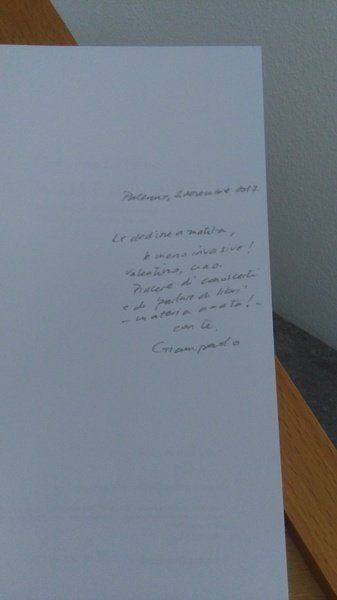 Palermo, 2 novembre 2017
Le dediche a matita,
meno invasive!
Valentino, ciao.
Piacere di conoscerti
e di "parlare di libri"
- materia amata! -
con te.
Giampaolo